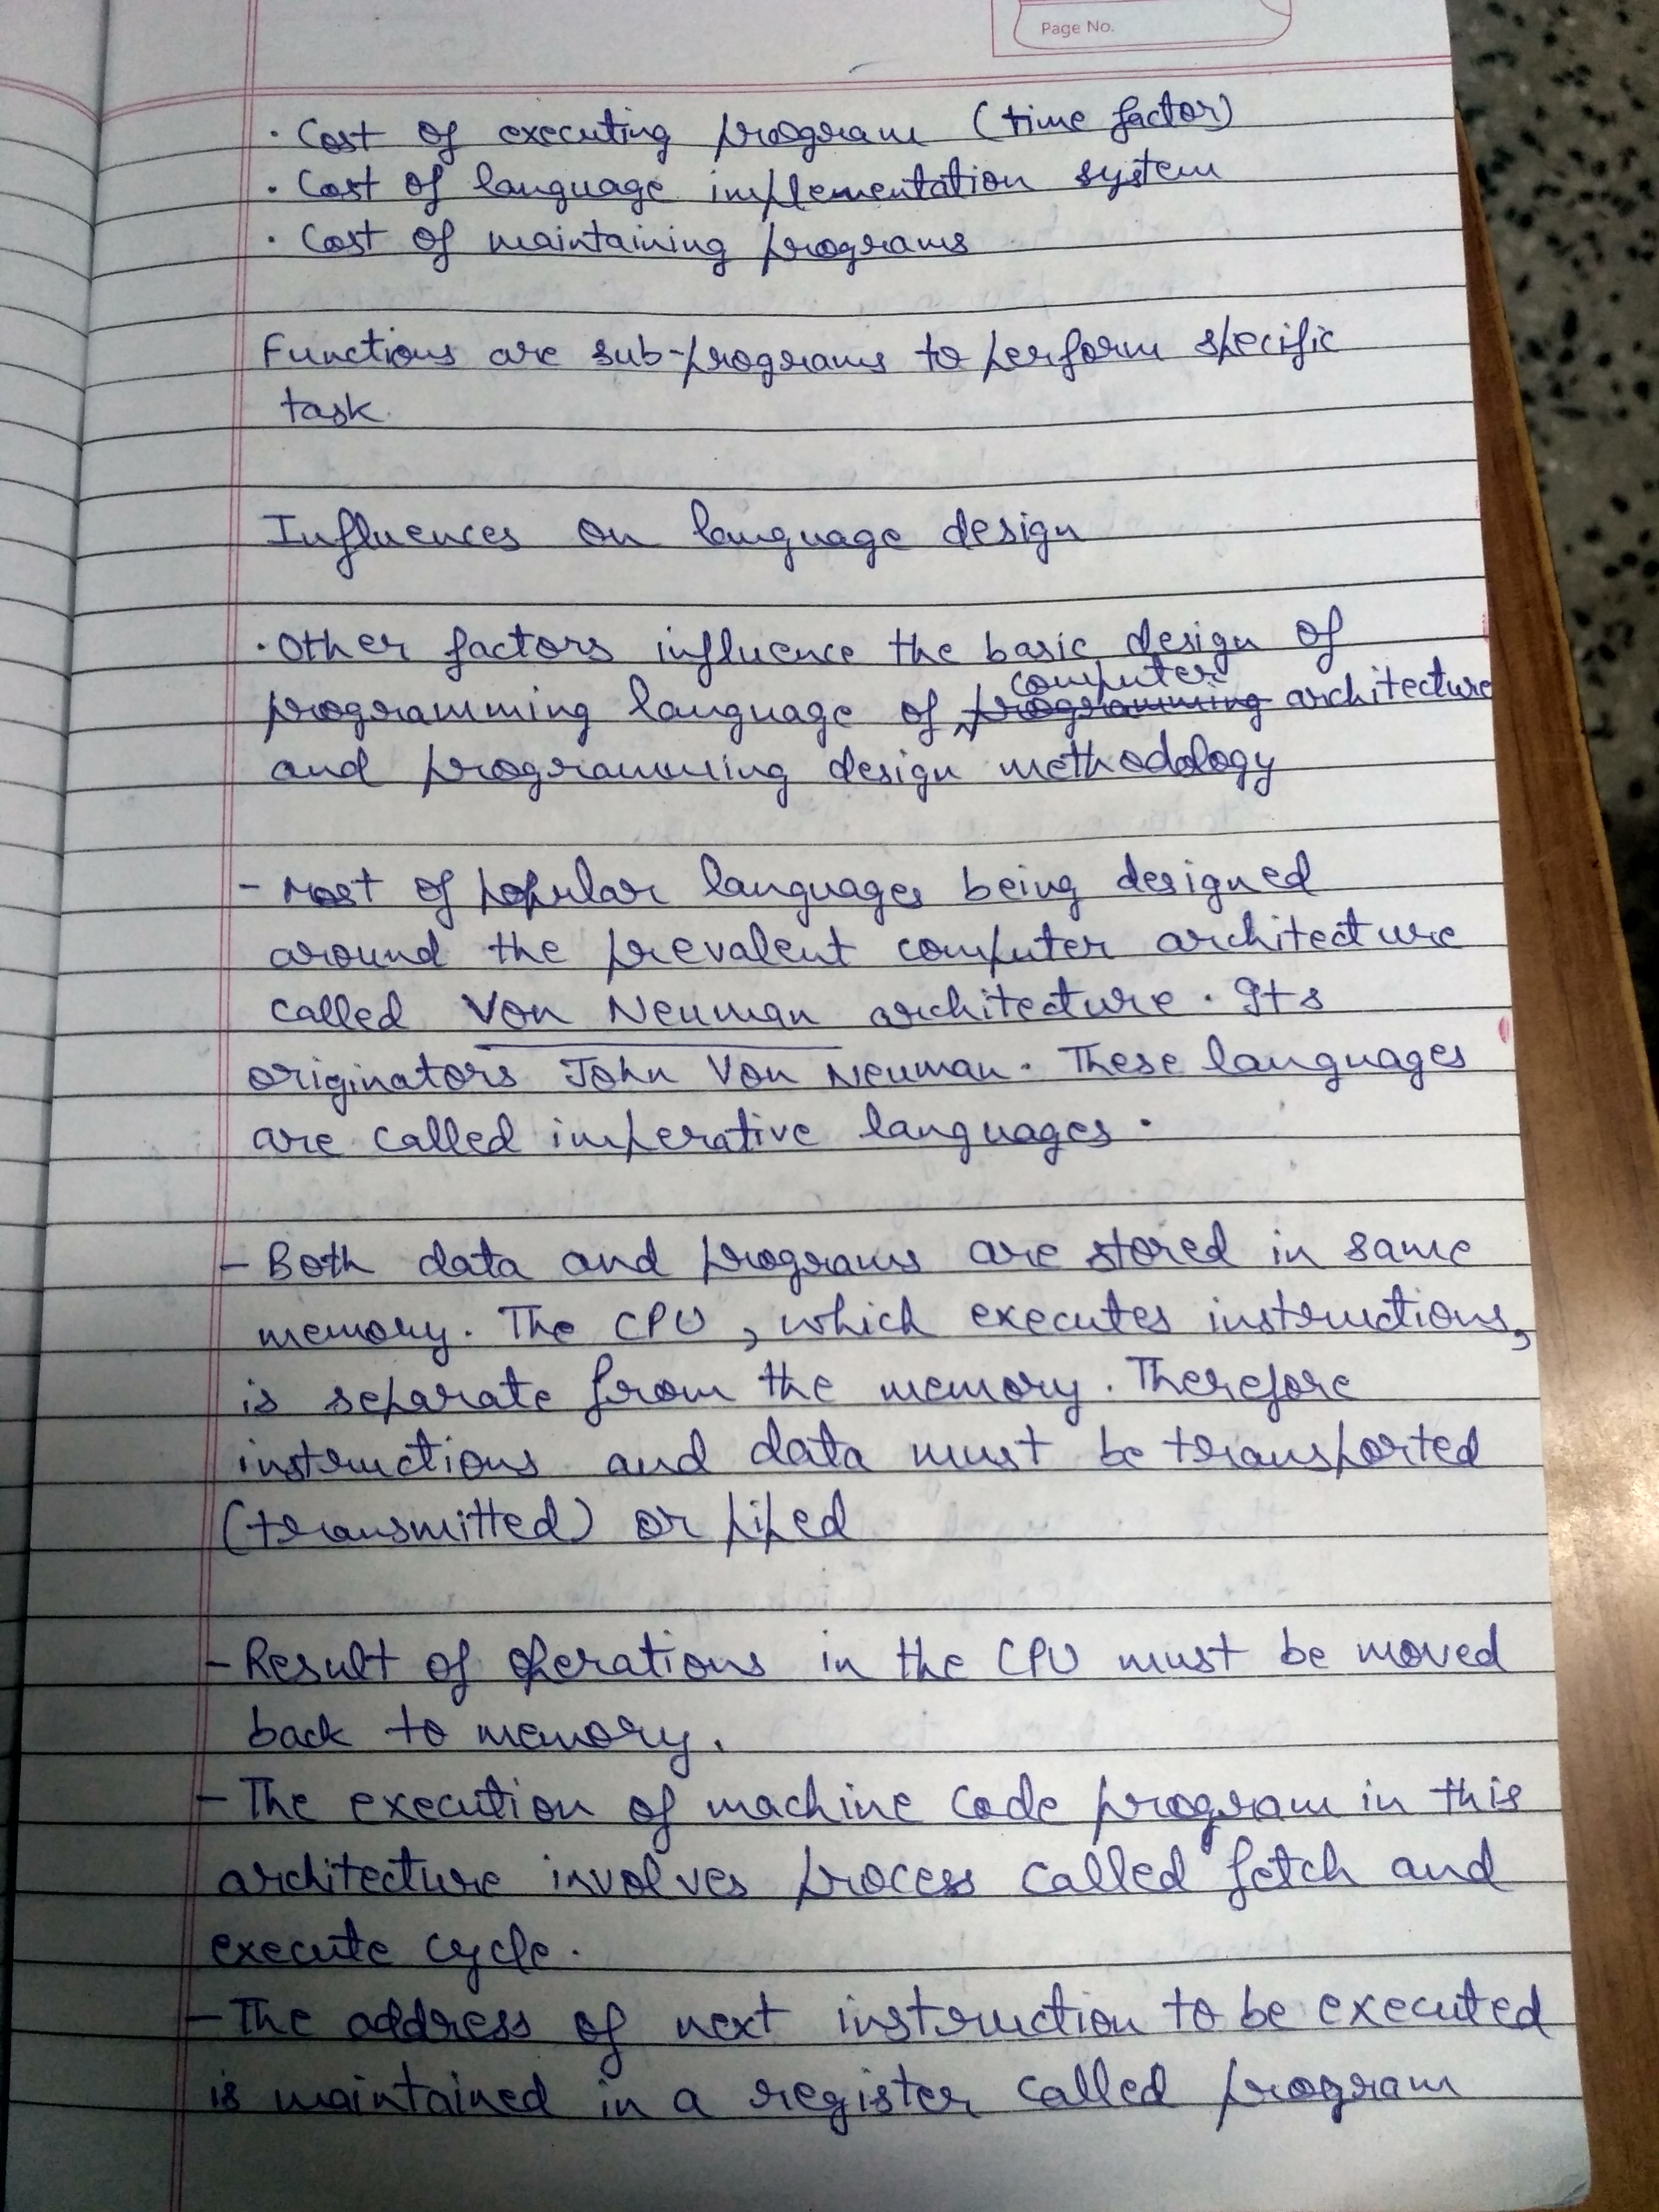 Page No.
· Cost of executing program (time factor)
· Cost of language implementation system
· Cost of maintaining programs
Functions are sub-programs to perform specific
task.
Influences on language design
· Other factors influence the basic design of
computer
programming language of programming architecture
and programming design methodology
- Most of popular languages being designed
around the prevalent computer architecture
called Von Neuman architecture. Its
originators John Von Neuman. These languages
are called imperative languages.
- Both data and programs are stored in same
memory. The CPU, which executes instructions,
is separate from the memory. Therefore
instructions and data must be transported
(transmitted) or piped
- Result of operations in the CPU must be moved
back to memory.
- The execution of machine code program in this
architecture involves process called fetch and
execute cycle.
- The address of next instruction to be executed
is maintained in a register called program